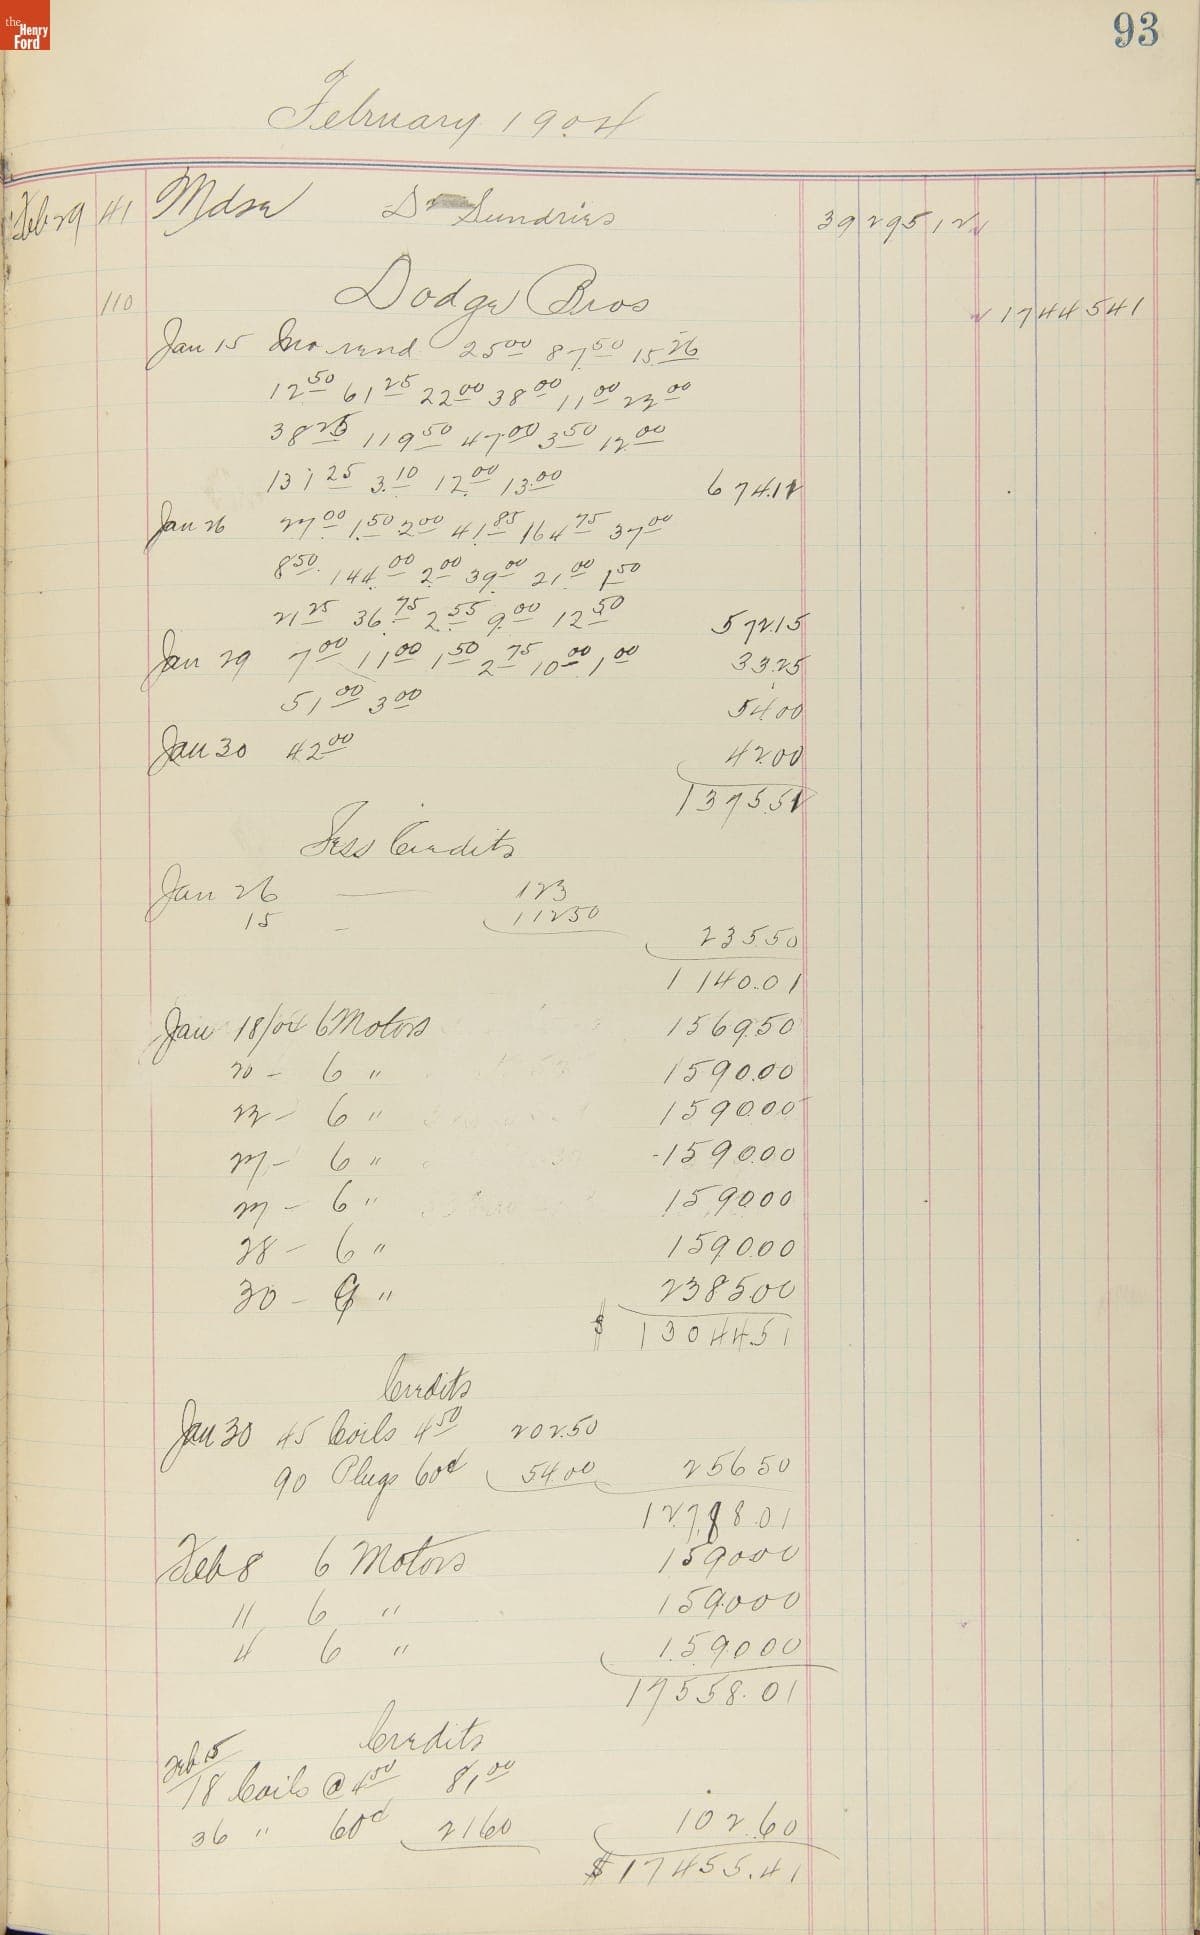 the Henry Ford
93
February 1904
Feb 29 41 Mdse Dr Sundries 39295 12
110 Dodge Bros 17445 41
Jan 15 Inv rend 25.00 87.50 15.26
12.50 61.25 22.00 38.00 11.00 22.00
38.25 119.50 47.00 3.50 12.00
131.25 3.10 12.00 13.00 674.12
Jan 26 27.00 1.50 2.00 41.85 164.75 37.00
8.50 144.00 2.00 39.00 21.00 1.50
21.25 36.75 2.55 9.00 12.50 572.15
Jan 29 7.00 11.00 1.50 2.75 10.00 1.00 33.25
51.00 3.00 54.00
Jan 30 42.00 42.00
1375.52
Less Credits
Jan 26 — 123
15 – 112 50
235.50
1140.01
Jan 18/04 6 Motors 1569.50
20 – 6 " 1590.00
22 – 6 " 1590.00
27 – 6 " 1590.00
27 – 6 " 1590.00
28 – 6 " 1590.00
30 – 9 " 2385.00
$ 13044 51
Credits
Jan 30 45 Coils 4.50 202.50
90 Plugs 60¢ 54.00 256 50
12788.01
Feb 8 6 Motors 1590.00
11 6 " 1590.00
4 6 " 1590.00
17558.01
Credits
Feb 15
18 Coils @ 4.50 81.00
36 " 60¢ 21 60 102.60
$ 17455.41